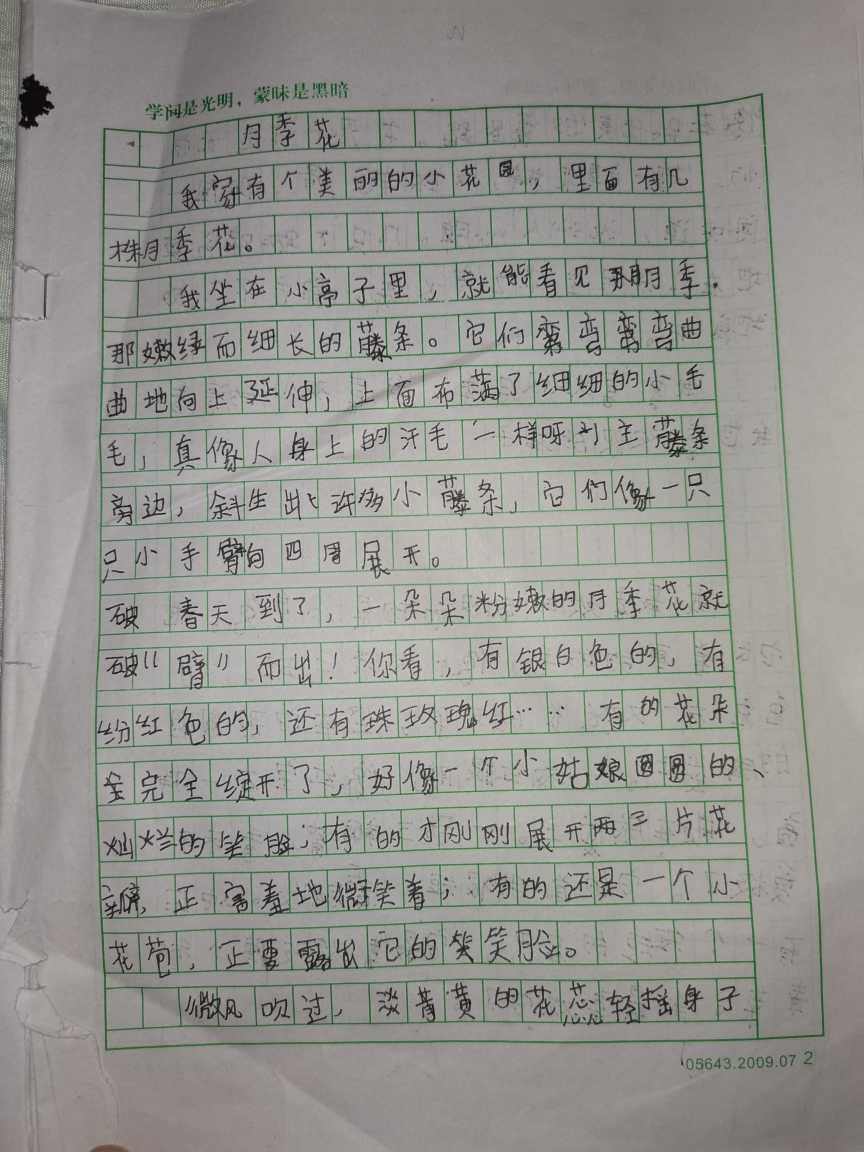 学问是光明，蒙昧是黑暗
月季花
我家有个美丽的小花园，里面有几
株月季花。
我坐在小亭子里，就能看见月季.
那嫩绿而细长的藤条。它们弯弯弯弯曲
曲地向上延伸，上面布满了细细的小毛
毛，真像人身上的汗毛一样呀！主藤条
旁边，斜生出许多小藤条，它们像一只
只小手臂向四周展开。
破 春天到了，一朵朵粉嫩的月季花就
破“臂”而出！你看，有银白色的，有
纷红色的，还有珠玫瑰红……有的花朵
全完全绽开了，好像一个小姑娘圆圆的、
灿烂的笑脸；有的才刚刚展开两三片花
瓣，正害羞地微笑着；有的还是一个小
花苞，正要露出它的笑笑脸。
微风吹过，淡青黄的花蕊轻摇身子
05643.2009.07 2